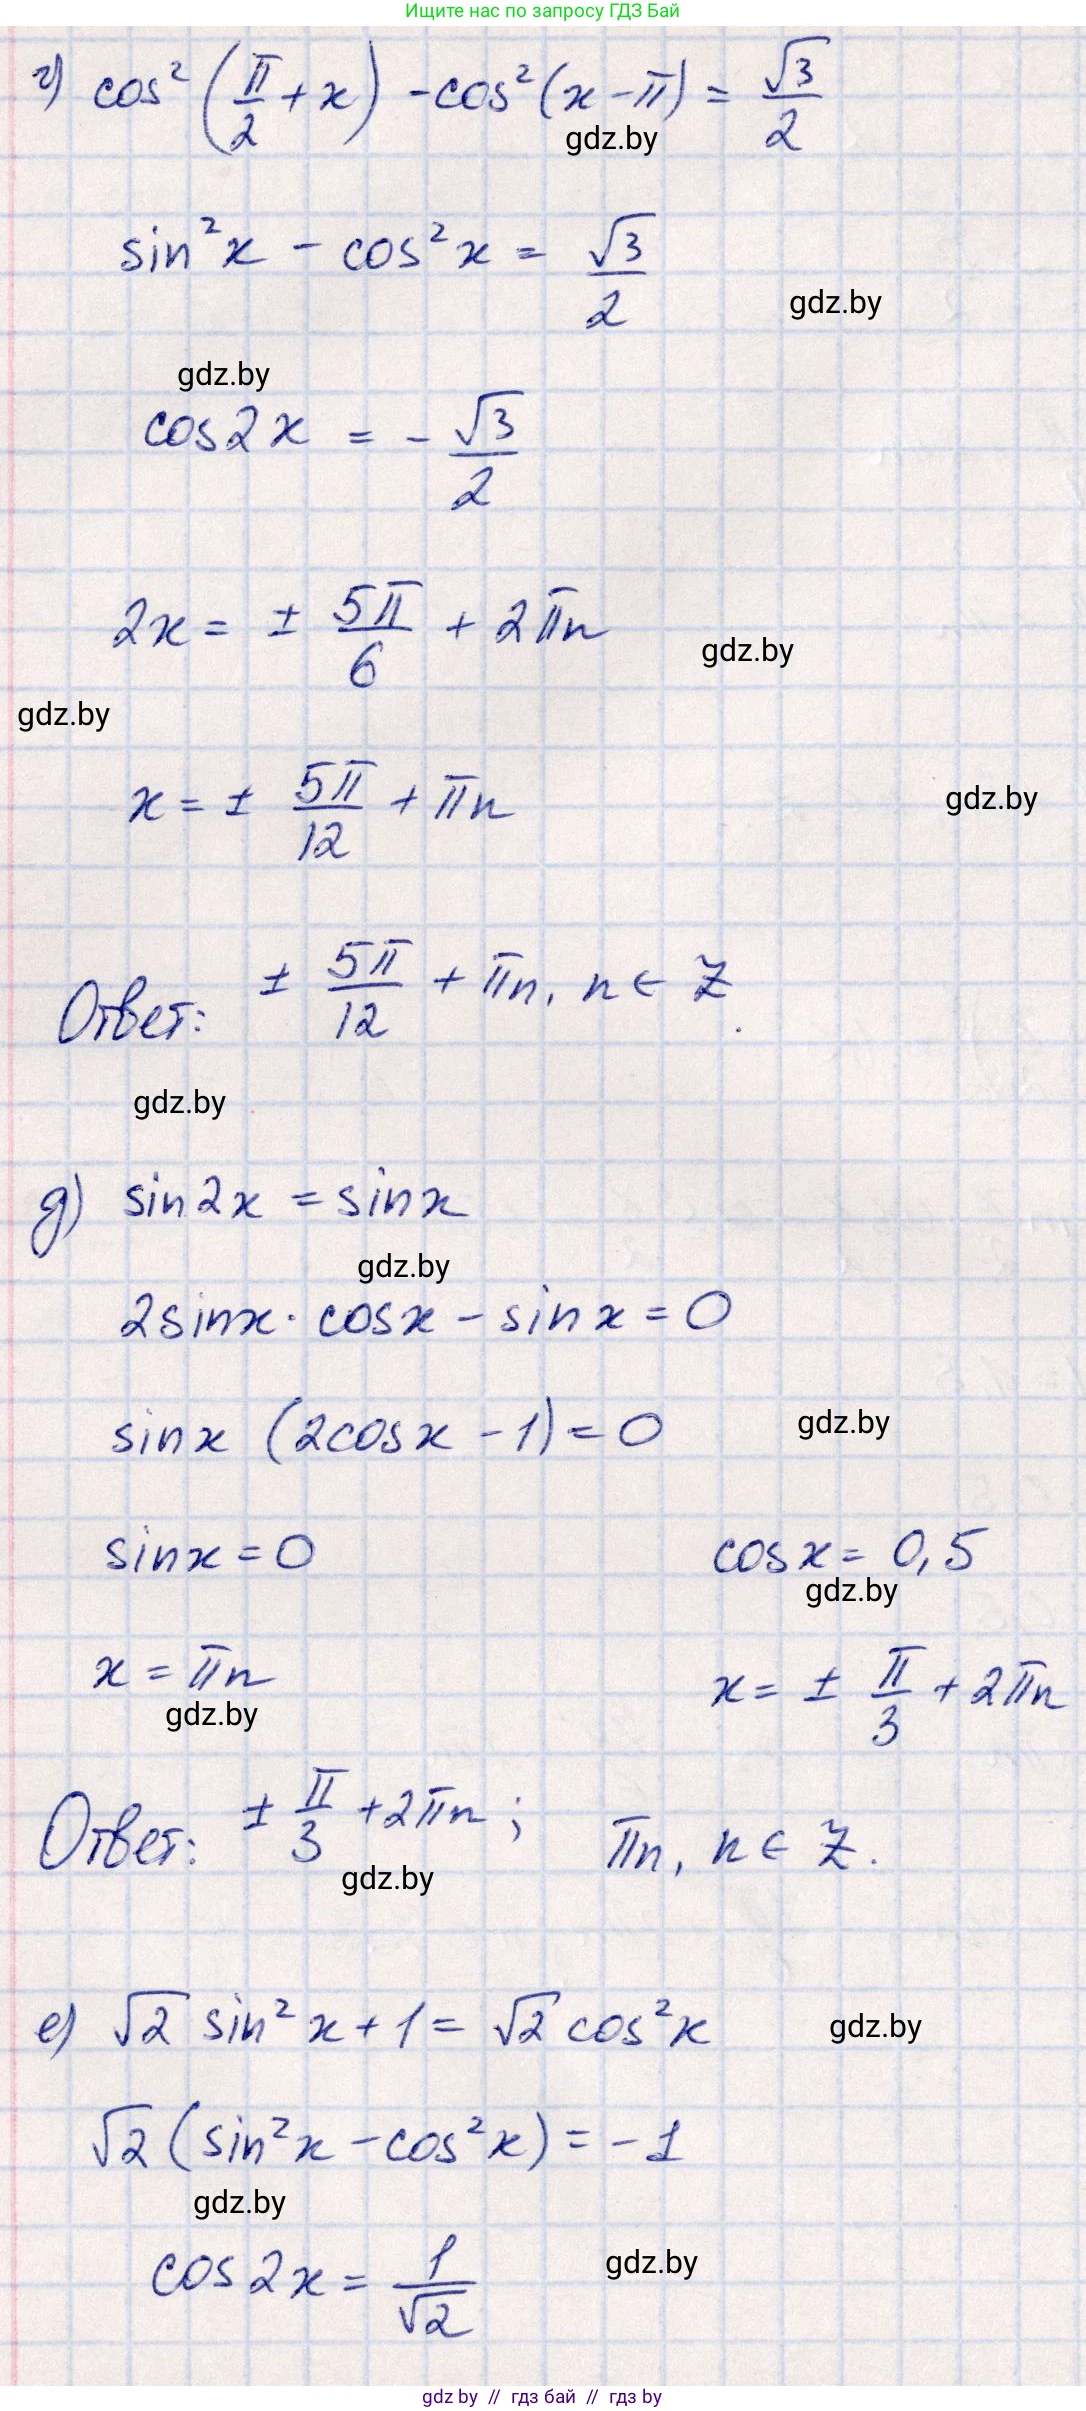 Ищите нас по запросу ГДЗ Бай
г) cos² (π/2 + x) - cos² (x - π) = √3/2
gdz.by
sin² x - cos² x = √3/2
gdz.by
gdz.by
cos 2x = - √3/2
2x = ± 5π/6 + 2πn
gdz.by
gdz.by
x = ± 5π/12 + πn
gdz.by
Ответ: ± 5π/12 + πn, n ∈ Z.
gdz.by
д) sin 2x = sin x
gdz.by
2 sin x · cos x - sin x = 0
sin x (2cos x - 1) = 0
gdz.by
sin x = 0 cos x = 0,5
gdz.by
x = πn x = ± π/3 + 2πn
gdz.by
Ответ: ± π/3 + 2πn ; πn, n ∈ Z.
gdz.by
е) √2 sin² x + 1 = √2 cos² x
gdz.by
√2 (sin² x - cos² x) = - 1
gdz.by
cos 2x = 1/√2
gdz.by
gdz by // гдз бай // гдз by